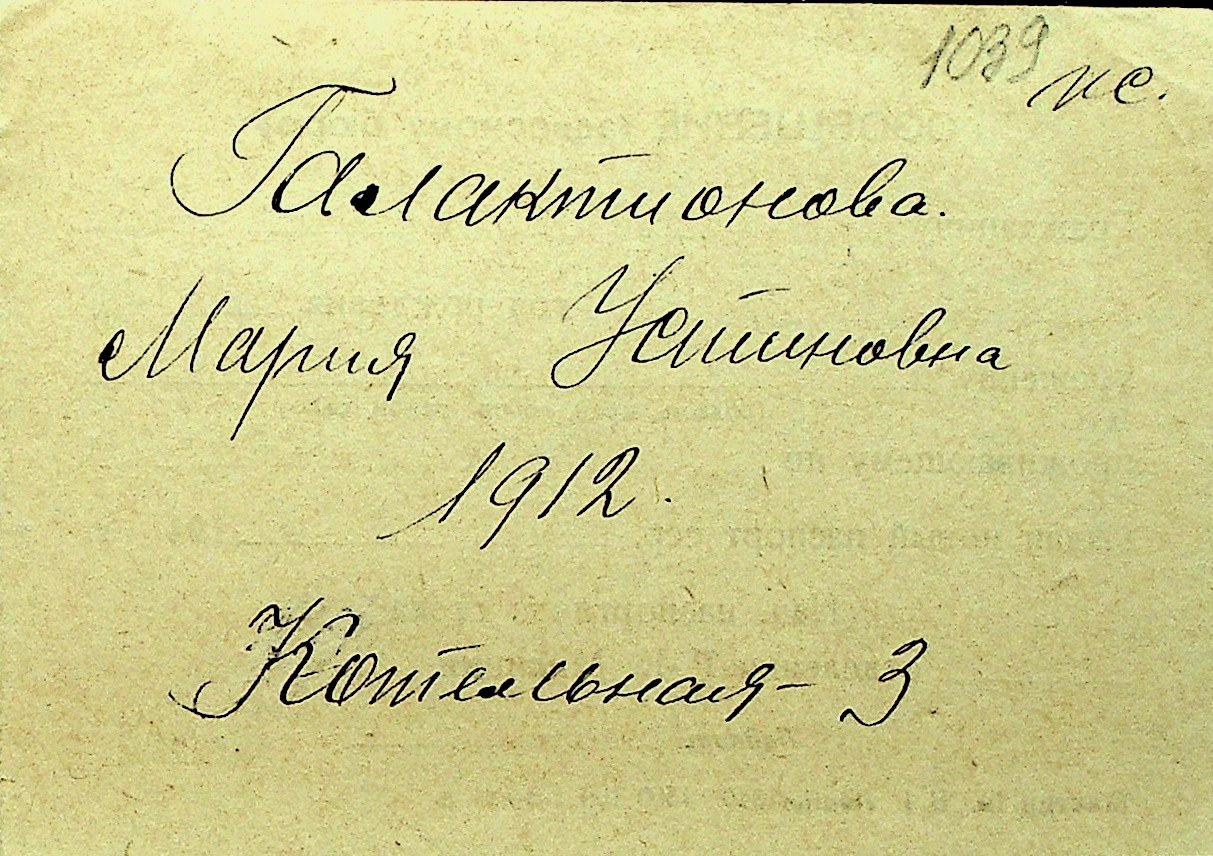 1039 пс.
Галактионова.
Мария Устиновна
1912.
Котельная - 3